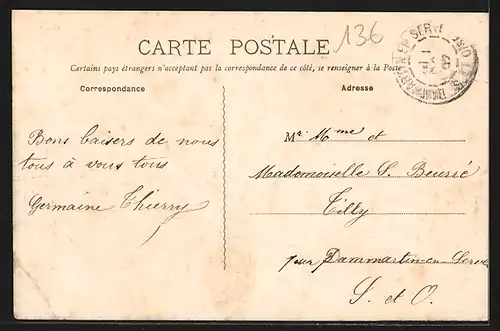 136
CARTE POSTALE
Certains pays étrangers n'acceptant pas la correspondance de ce côté, se renseigner à la Poste
Correspondance
Adresse
Bons baisers de nous
tous à vous tous
Germaine Thierry
Mr. Mme et
Mademoiselle S. Beurié
Tilly
par Dammartin-en-Serve
S. et O.